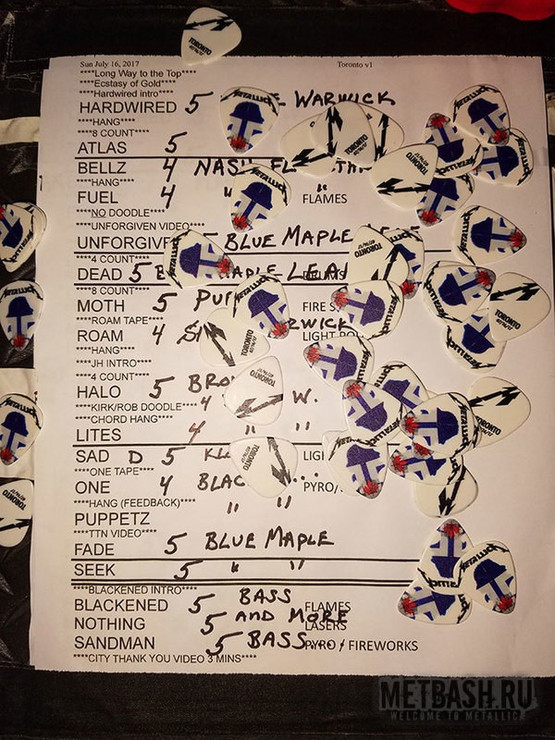 Sun July 16, 2017 Toronto v1
****Long Way to the Top****
****Ecstasy of Gold****
****Hardwired intro****
HARDWIRED 5 WARWICK
****HANG****
****8 COUNT****
ATLAS 5
BELLZ 4 NASH
****HANG****
FUEL 4 " " FLAMES
****NO DOODLE****
****UNFORGIVEN VIDEO****
UNFORGIVE 5 BLUE MAPLE
****4 COUNT****
DEAD 5 MAPLE LEA
****8 COUNT****
MOTH 5 FIRE
****ROAM TAPE****
ROAM 4
****HANG****
LIGHT
****JH INTRO****
****4 COUNT****
HALO 5 W.
****KIRK/ROB DOODLE**** 4
****CHORD HANG****
LITES 4
SAD D 5
****ONE TAPE****
ONE 4 BLAC PYRO/
****HANG (FEEDBACK)****
" "
PUPPETZ
****TTN VIDEO****
FADE 5 BLUE MAPLE
SEEK 5 " "
****BLACKENED INTRO****
BLACKENED 5 BASS FLAMES
NOTHING 5 AND MORE LASERS
SANDMAN 5 BASS... PYRO / FIREWORKS
****CITY THANK YOU VIDEO 3 MINS****
METALLICA
TORONTO
METBASH.RU
WELCOME TO METALLIC